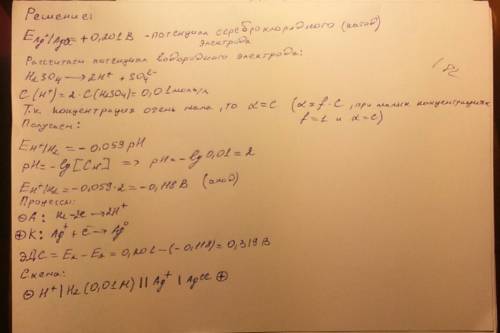 Решение:
E Ag⁺|AgCl = +0,201 В - потенциал сереброхлоридного (катод)
электрода
Рассчитаем потенциал водородного электрода:
H₂SO₄ → 2H⁺ + SO₄²⁻
C(H⁺) = 2·C(H₂SO₄) = 0,01 моль/л
Т.к концентрация очень мала, то α=C (α=f·C, при малых концентрациях
f=1 и α=C)
Получаем:
E H⁺/H₂ = -0,059 pH
pH = -lg[C H⁺] => pH = -lg 0,01 = 2
E H⁺/H₂ = -0,059·2 = -0,118 В (анод)
Процессы:
⊖ A: H₂ - 2e → 2H⁺
⊕ K: Ag⁺ + e → Ag⁰
ЭДС = Eк - Eа = 0,201 - (-0,118) = 0,319 В
Схема:
⊖ H⁺ | H₂ (0,01 М) || Ag⁺ | AgCl ⊕